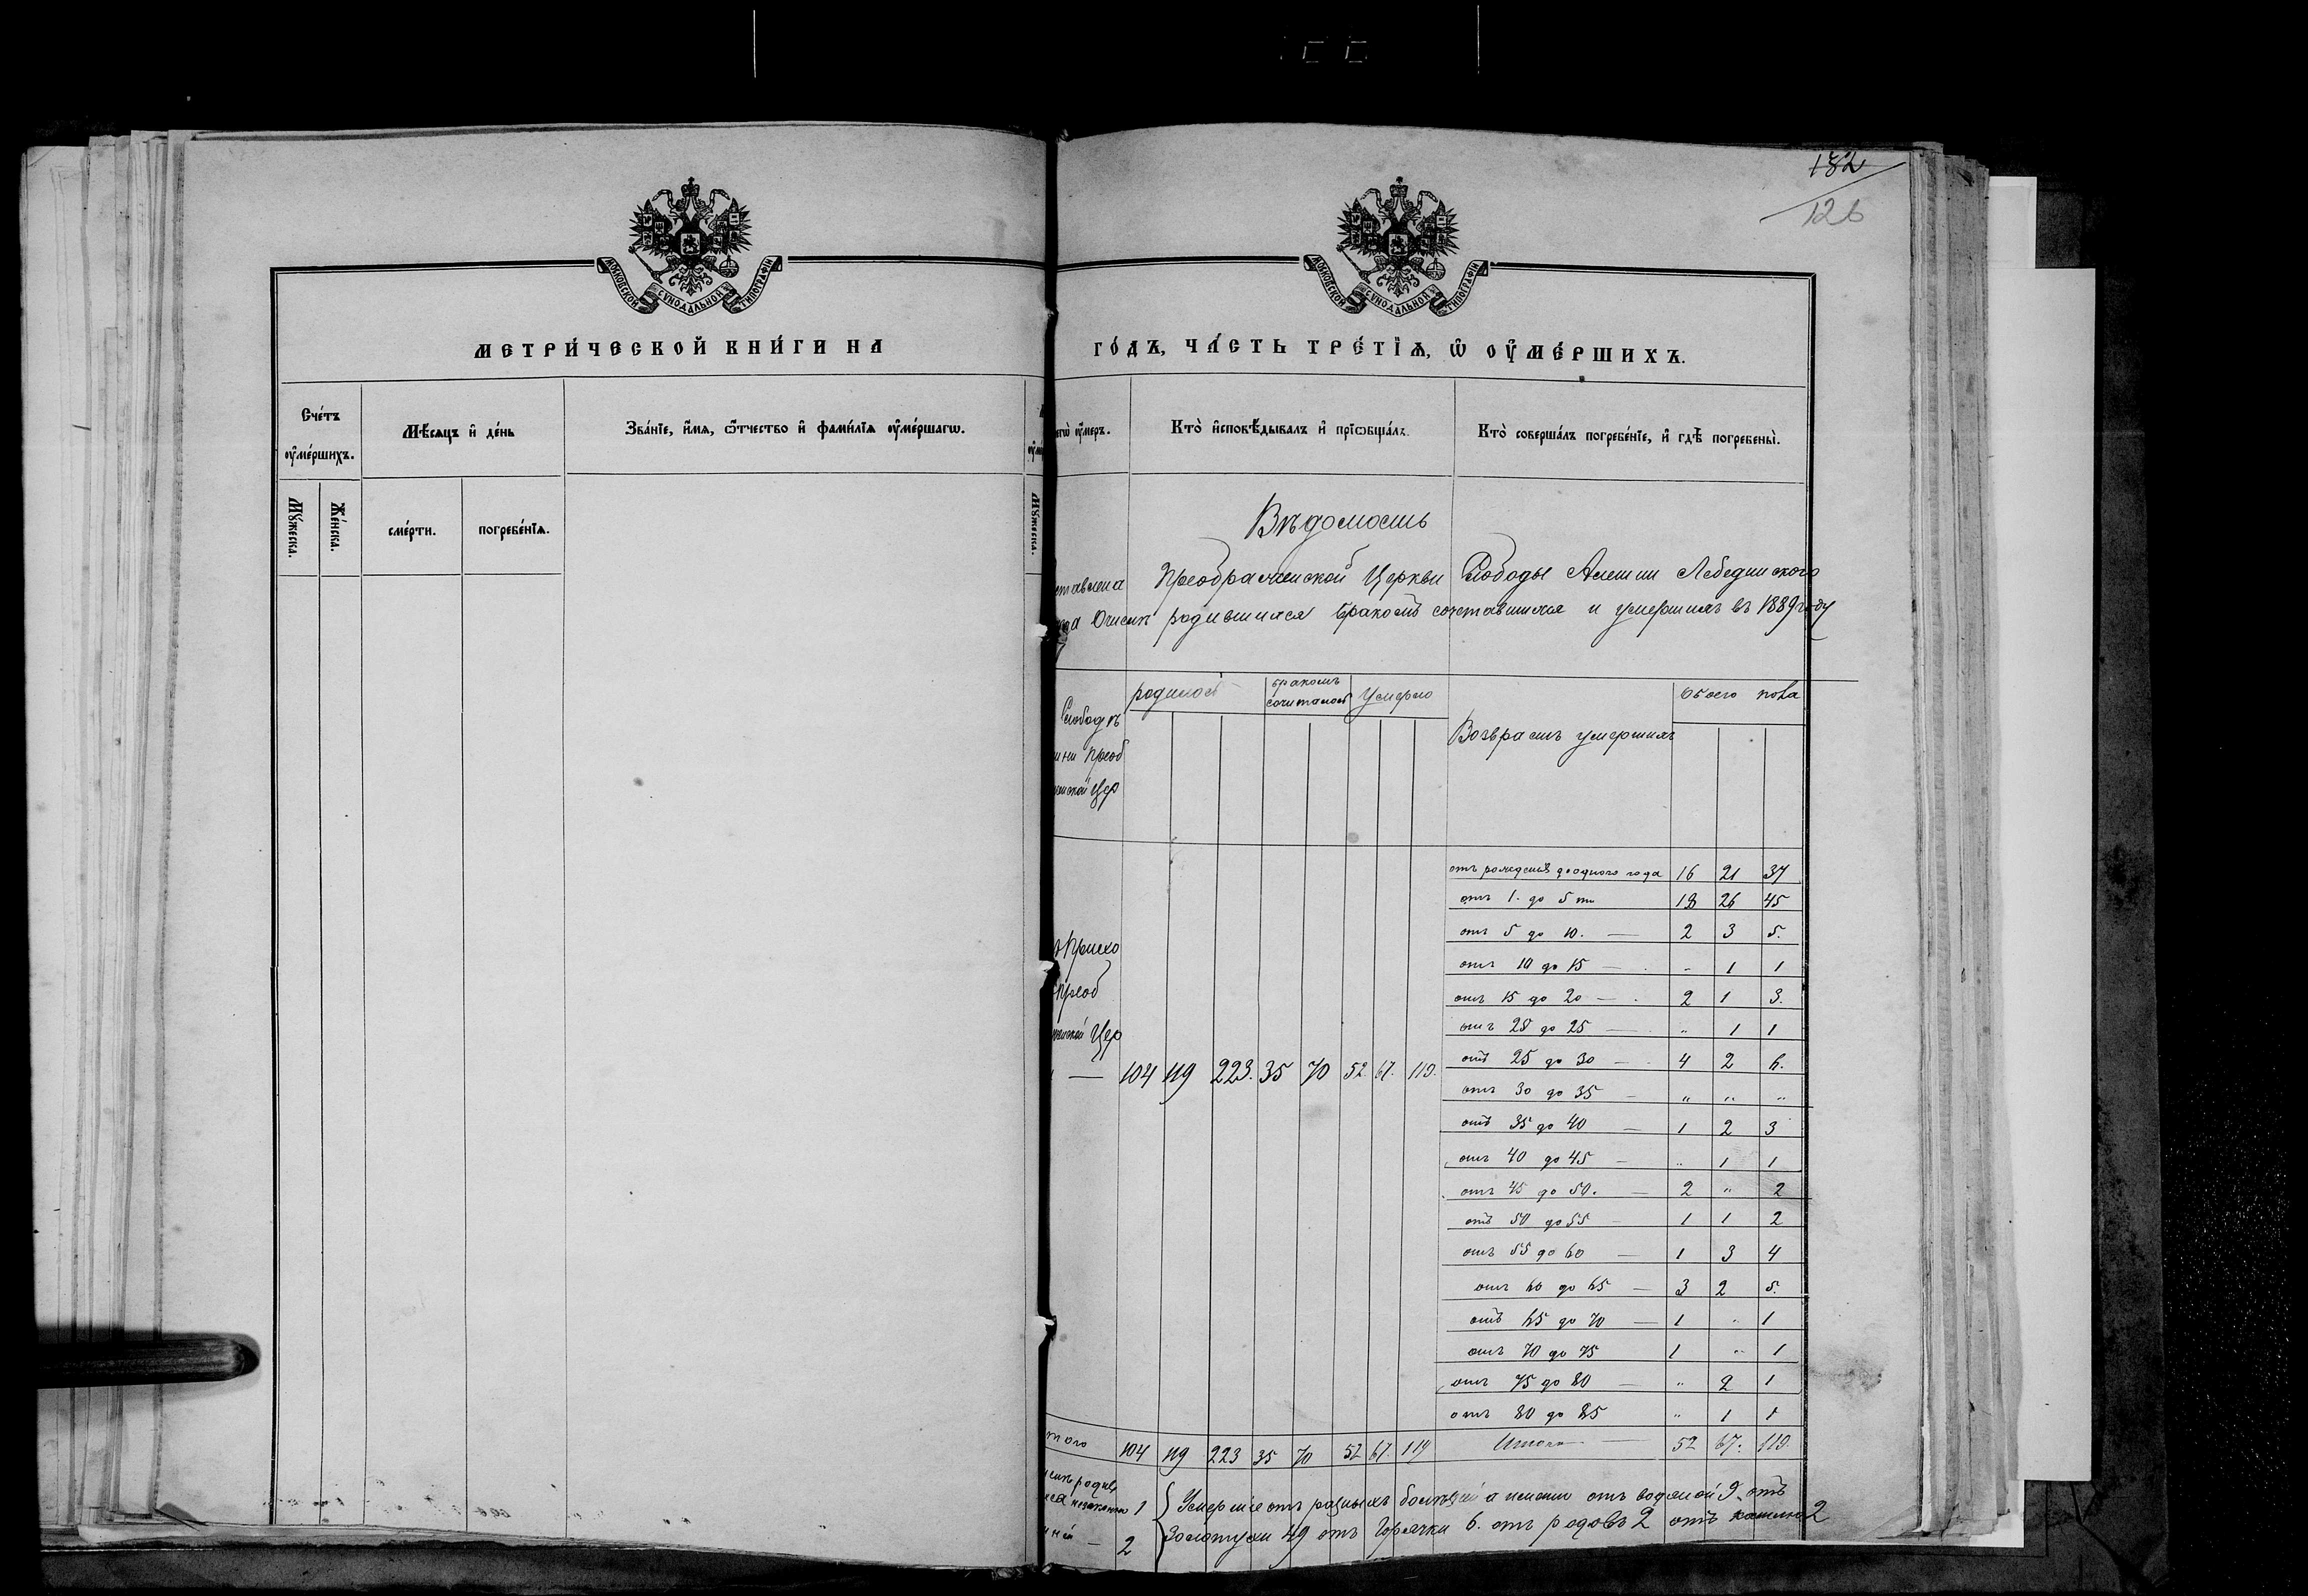 182
126
МОСКОВСКОЙ СѴНОДАЛЬНОЙ ТИПОГРАФІИ
МОСКОВСКОЙ СѴНОДАЛЬНОЙ ТИПОГРАФІИ
МЕТРИ́ЧЕСКОЙ КНИ́ГИ НА
ГО́ДЪ, ЧА́СТЬ ТРЕ́ТІЯ, Ѡ ОУМЕ́РШИХЪ.
Сче́тъ
оуме́ршихъ.
Мѣ́сяцъ и де́нь
Зва́нїе, и́мя, ѻ́тчество и фами́лїя оуме́ршагѡ.
Му́жеска.
Же́нска.
сме́рти.
погребе́нїя.
Му́жеска.
егѡ оу́меръ.
Кто̀ исповѣ́дывалъ и прїѡбща́лъ.
Кто̀ соверша́лъ погребе́нїе, и гдѣ̀ погребены̀.
Вѣдомость
ставлена Преображенской Церкви Слободы Алешни Лебединского
Числѣ родившихся бракомъ сочетавшихся и умершихъ въ 1889 году
Слободѣ
шни Преоб
женской Цер
родилось
бракомъ
сочиталось
Умерло
Возврастъ умершихъ
Обоего пола
отъ рожденія до одного года 16 21 37
отъ 1. до 5 ти 18 26 45
отъ 5 до 10. — 2 3 5.
отъ 10 до 15 — - 1 1
отъ 15 до 20 — 2 1 3.
отъ 20 до 25 — „ 1 1
отъ 25 до 30 — 4 2 6.
отъ 30 до 35 — „ „ „
отъ 35 до 40 — 1 2 3
отъ 40 до 45 — „ 1 1
отъ 45 до 50. — 2 „ 2
отъ 50 до 55 — 1 1 2
отъ 55 до 60 — 1 3 4
отъ 60 до 65 — 3 2 5.
отъ 65 до 70 — 1 „ 1
отъ 70 до 75 1 „ 1
отъ 75 до 80 — „ 2 1
отъ 80 до 85 „ 1 1
Итого — 52 67. 119.
Прихо
Преоб
женской Цер
— 104 119 223. 35 70 52. 67. 119.
того 104 119 223 35 70 52 67. 119
родив
незаконно 1
— 2
Умершіе отъ разныхъ болѣзней а именно отъ водяной 9. отъ
Золотухи 49 отъ Горячки 6. отъ родовъ 2 отъ кашлю 2